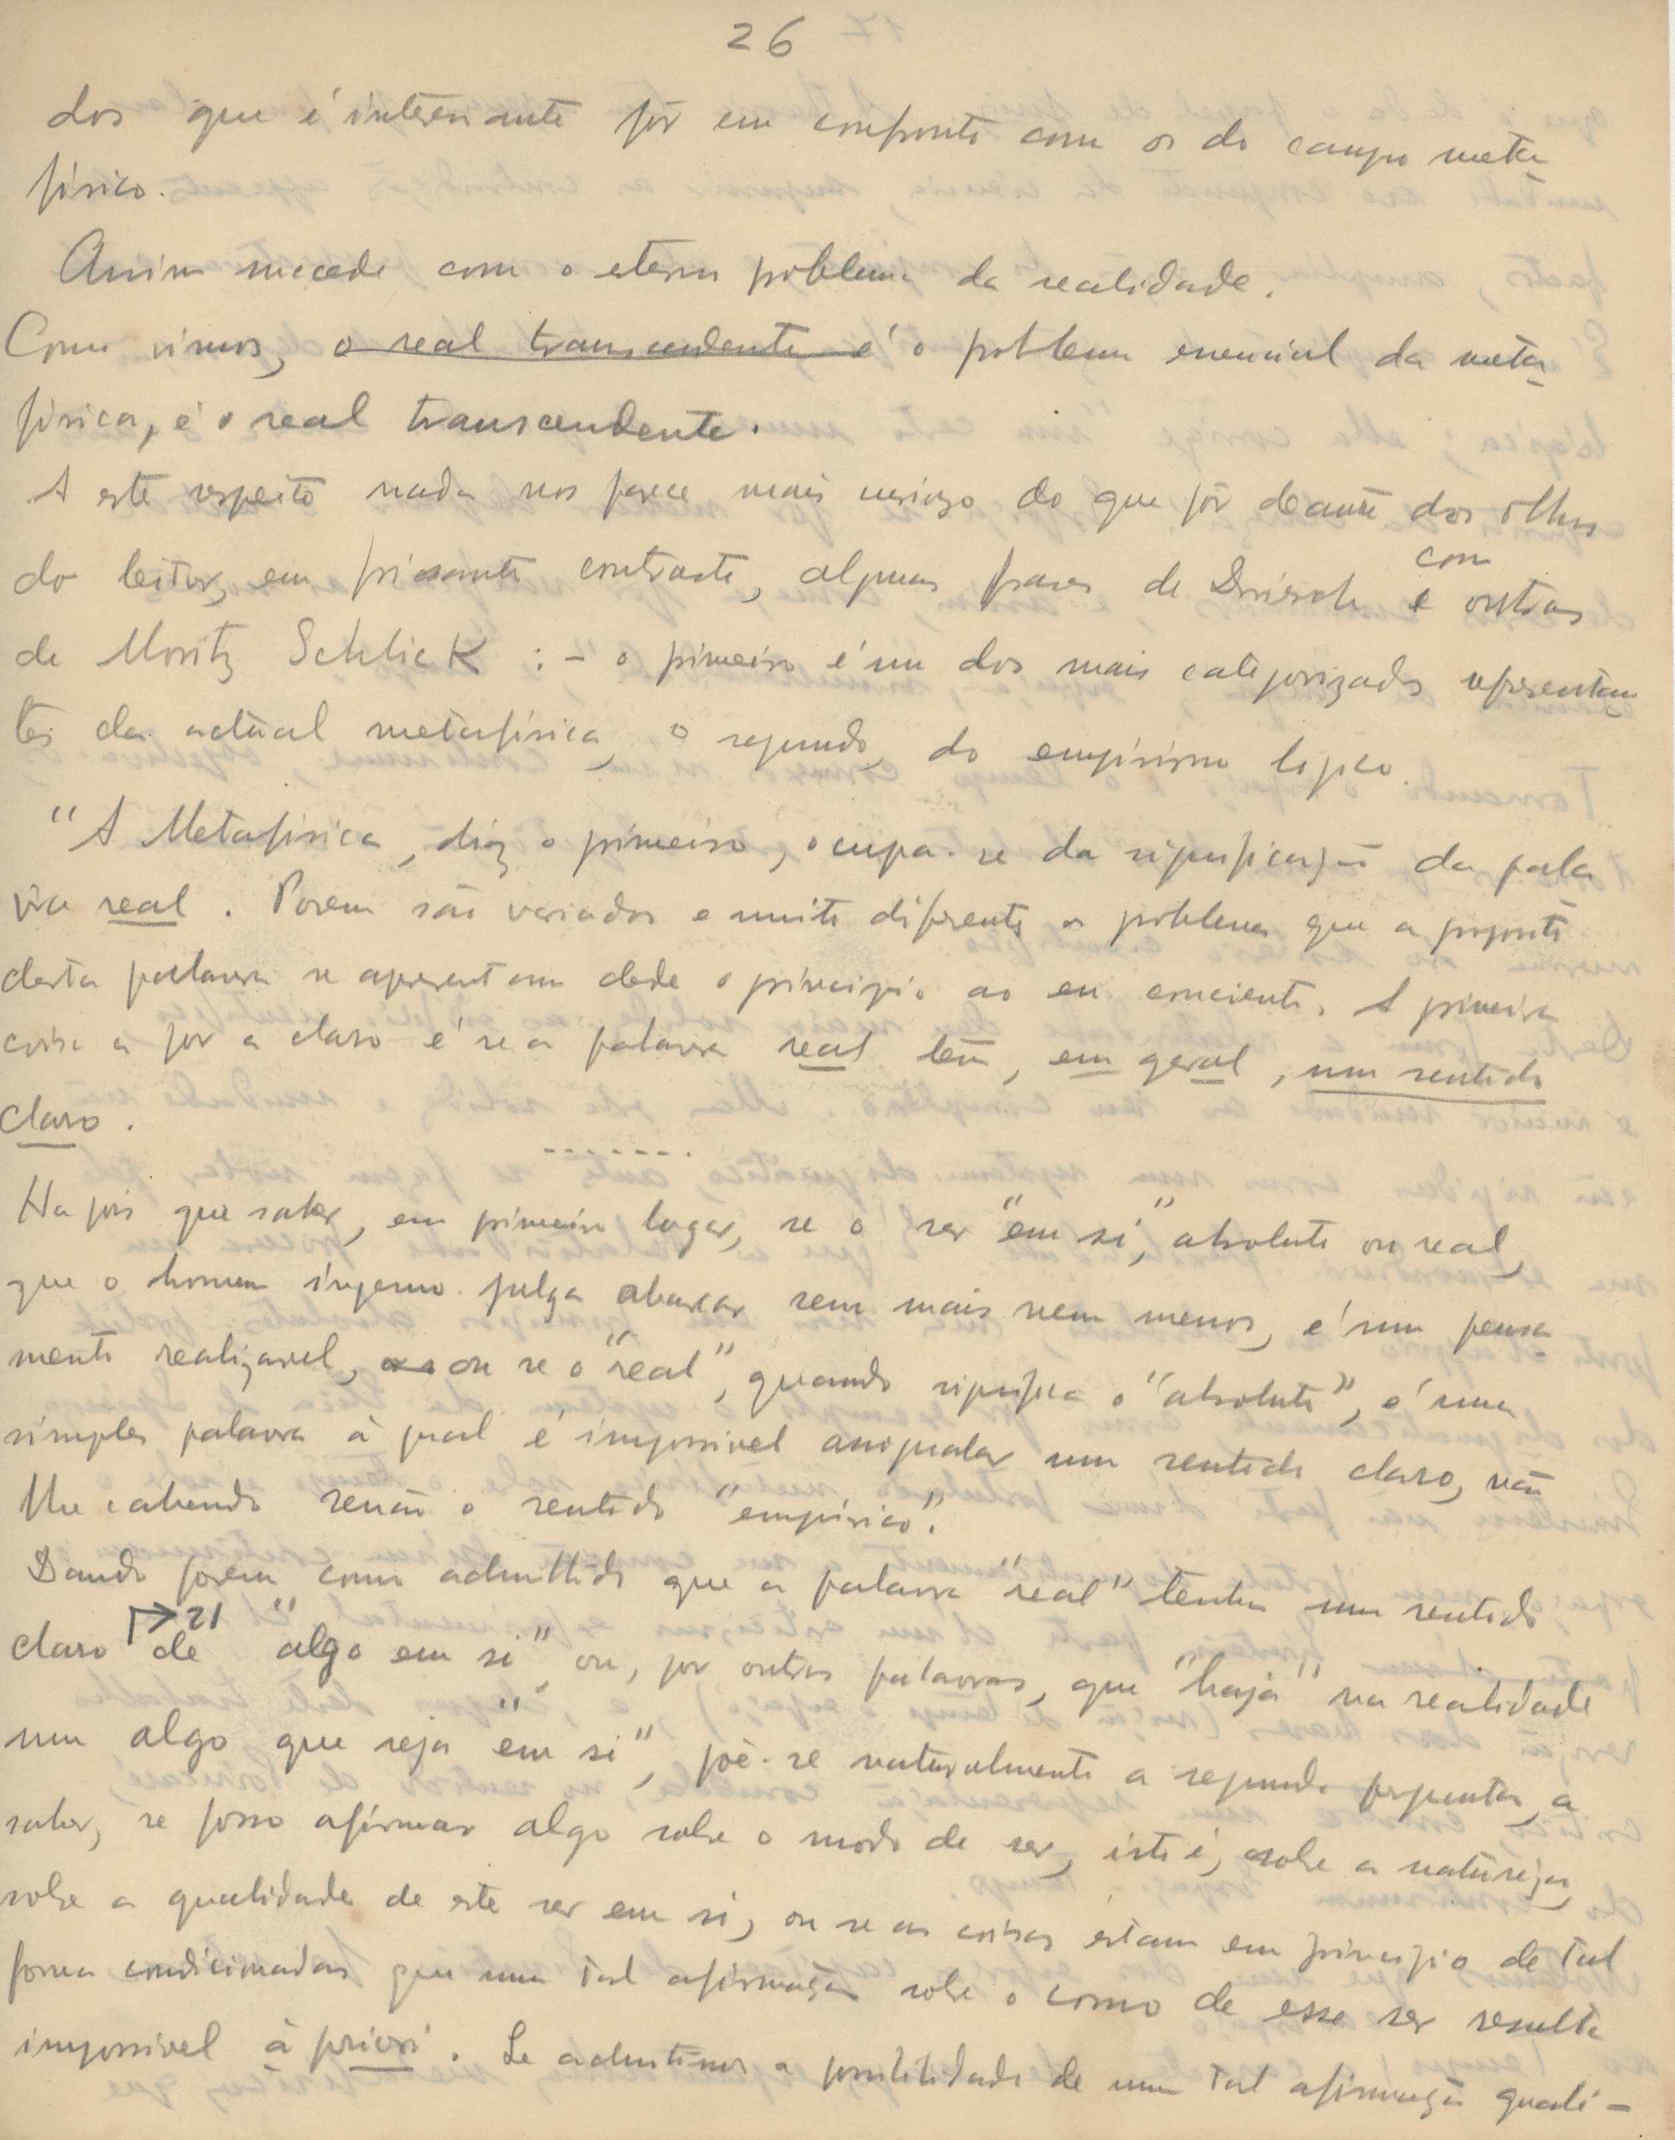 26
dos que é interessante pôr em confronto com os do campo meta-
físico.
Assim sucede com o eterno problema da realidade.
Como vimos, o real transcendente é o problema essencial da meta-
física, é o real transcendente.
A este respeito nada nos parece mais curiozo do que pôr deante dos olhos
do leitor, em frisante contraste, algumas frases de Driesch e com outras
de Moritz Schlick : - o primeiro é um dos mais categorizados representan-
tes da actual metafísica, o segundo, do empirismo logico.
"A Metafisica, diz o primeiro, ocupa-se da significação da pala
vra real. Porem são variados e muito diferentes os problemas que a proposito
desta palavra se apresentam desde o principio ao eu consciente. A primeira
coisa a por a claro é se a palavra real tem, em geral, um sentido
claro.
.......
Ha pois que saber, em primeiro lugar, se o ser "em si", absoluto ou real,
que o homem ingenuo julga abarcar sem mais nem menos, é um pensa-
mento realizavel, ou se o "real", quando significa o "absoluto", é uma
simples palavra à qual é impossivel assignalar um sentido claro, não
lhe cabendo senão o sentido "empirico".
Dando porem como admittido que a palavra "real" tenha um sentido
claro 21 de "algo em si", ou, por outras palavras, que "haja" na realidade
um algo que seja "em si", põe-se naturalmente a segunda pergunta, a
saber, se posso afirmar algo sobre o modo de ser, isto é, sobre a natureza,
sobre a qualidade de este ser em si, ou se as coisas estam em principio de tal
forma condicionadas que uma tal afirmação sobre o como de esse ser resulta
impossivel à priori. Se admitimos a possibilidade de uma tal afirmação quali-